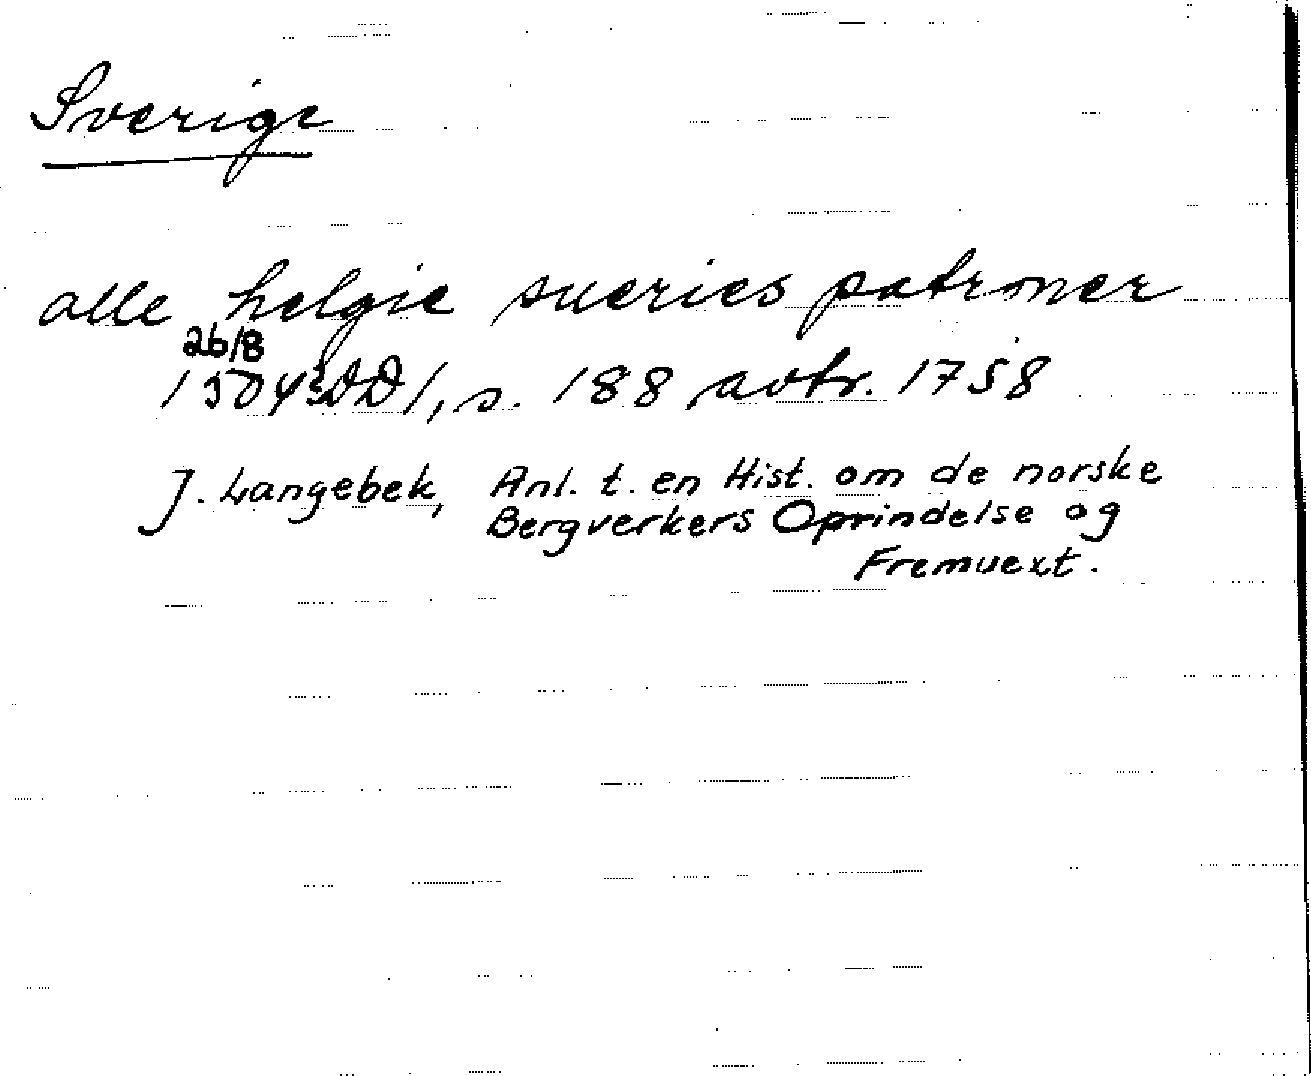 Sverige
alle helgie sueries patroner
26/8
1504 DD1, s. 188 avtr. 1758
J. Langebek, Anl. t. en Hist. om de norske
Bergverkers Oprindelse og
Fremuext.